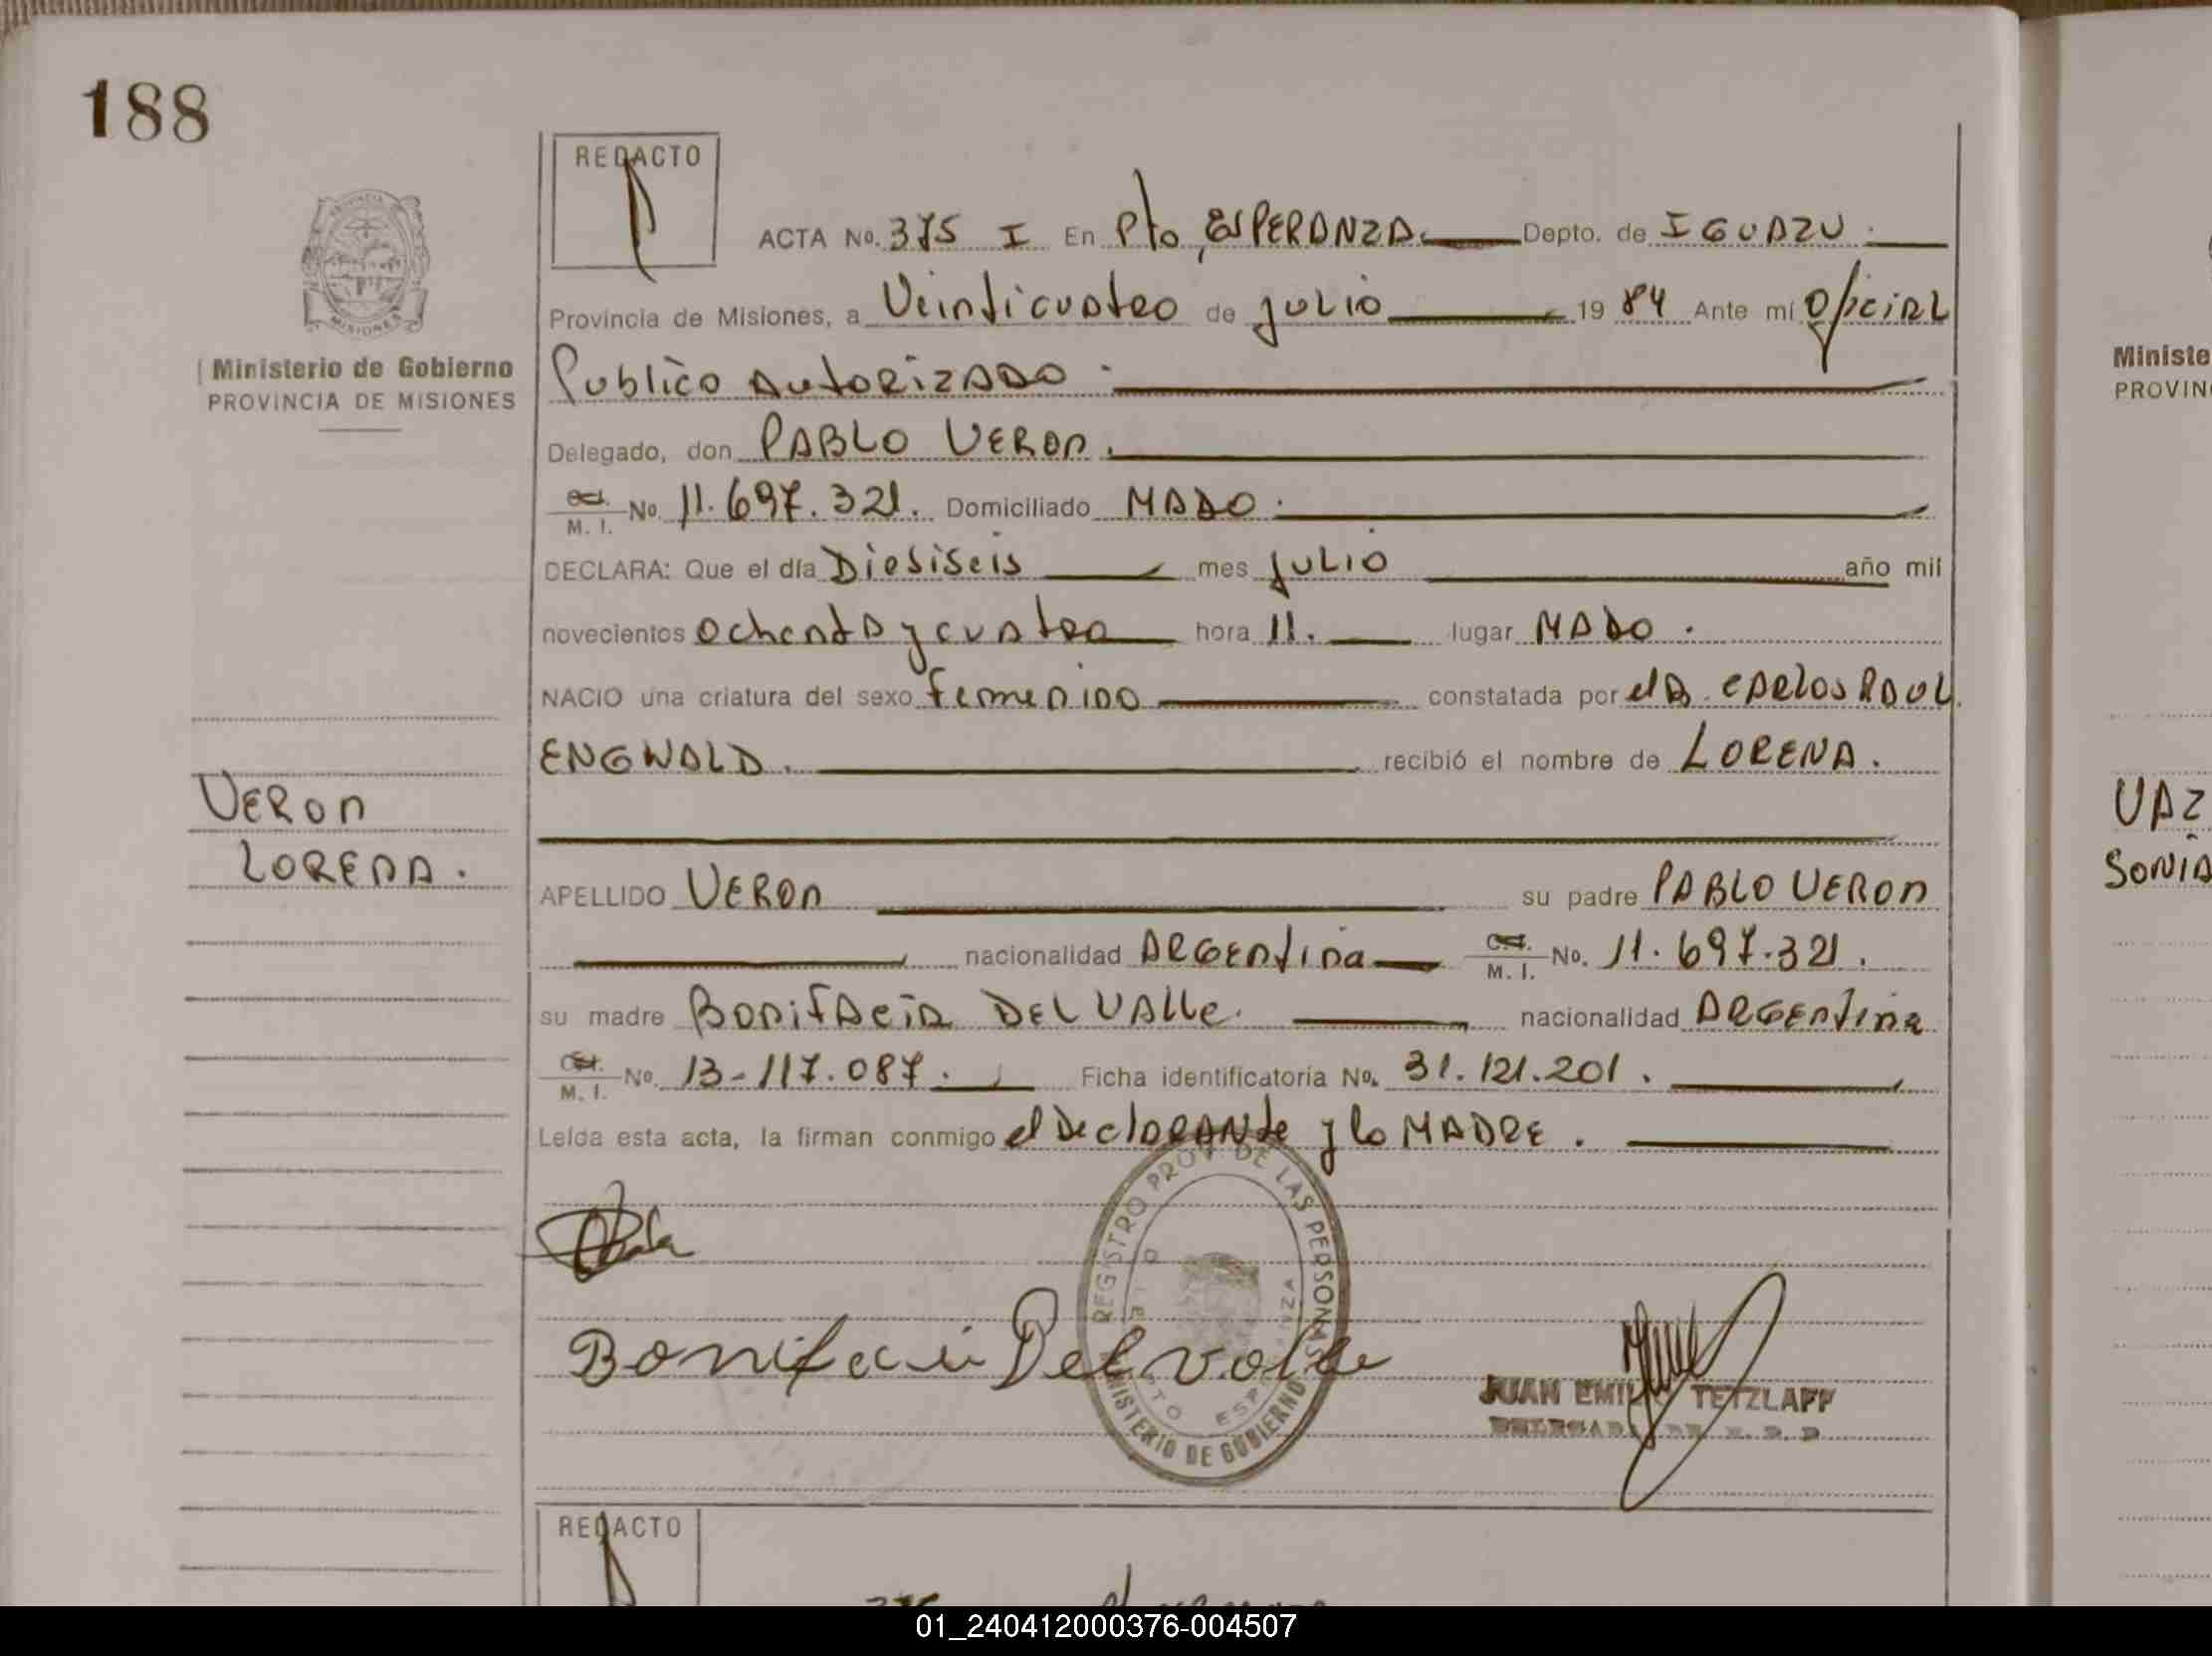 188
REDACTO
PROVINCIA DE
MISIONES
ACTA No. 375 I En Pto ESPERANZA. Depto. de IGUAZU.
Provincia de Misiones, a Veinticuatro de julio 1984 Ante mí Oficial
Ministerio de Gobierno
PROVINCIA DE MISIONES
Publico Autorizado.
Delegado, don PABLO VERON.
M. I. No. 11.697.321. Domiciliado MADO.
DECLARA: Que el día Diesiseis mes julio año mil
novecientos ochenta y cuatro hora 11. lugar MADO.
NACIO una criatura del sexo femenino constatada por el D. CARLOS RAUL
ENGWALD. recibió el nombre de LORENA.
VERON
LORENA.
APELLIDO VERON su padre PABLO VERON
nacionalidad ARGENTINA M. I. No. 11.697.321.
su madre BONIFACIA DEL VALLE. nacionalidad ARGENTINA
M. I. No. 13-117.087. Ficha identificatoria No. 31.121.201.
Leída esta acta, la firman conmigo el Declarante y la MADRE.
REGISTRO PROV. DE LAS PERSONAS
MINISTERIO DE GOBIERNO
Bonifacia Del Valle
JUAN EMILIO TETZLAFF
REDACTO
Ministe
PROVIN
VAZ
SONIA
01_240412000376-004507